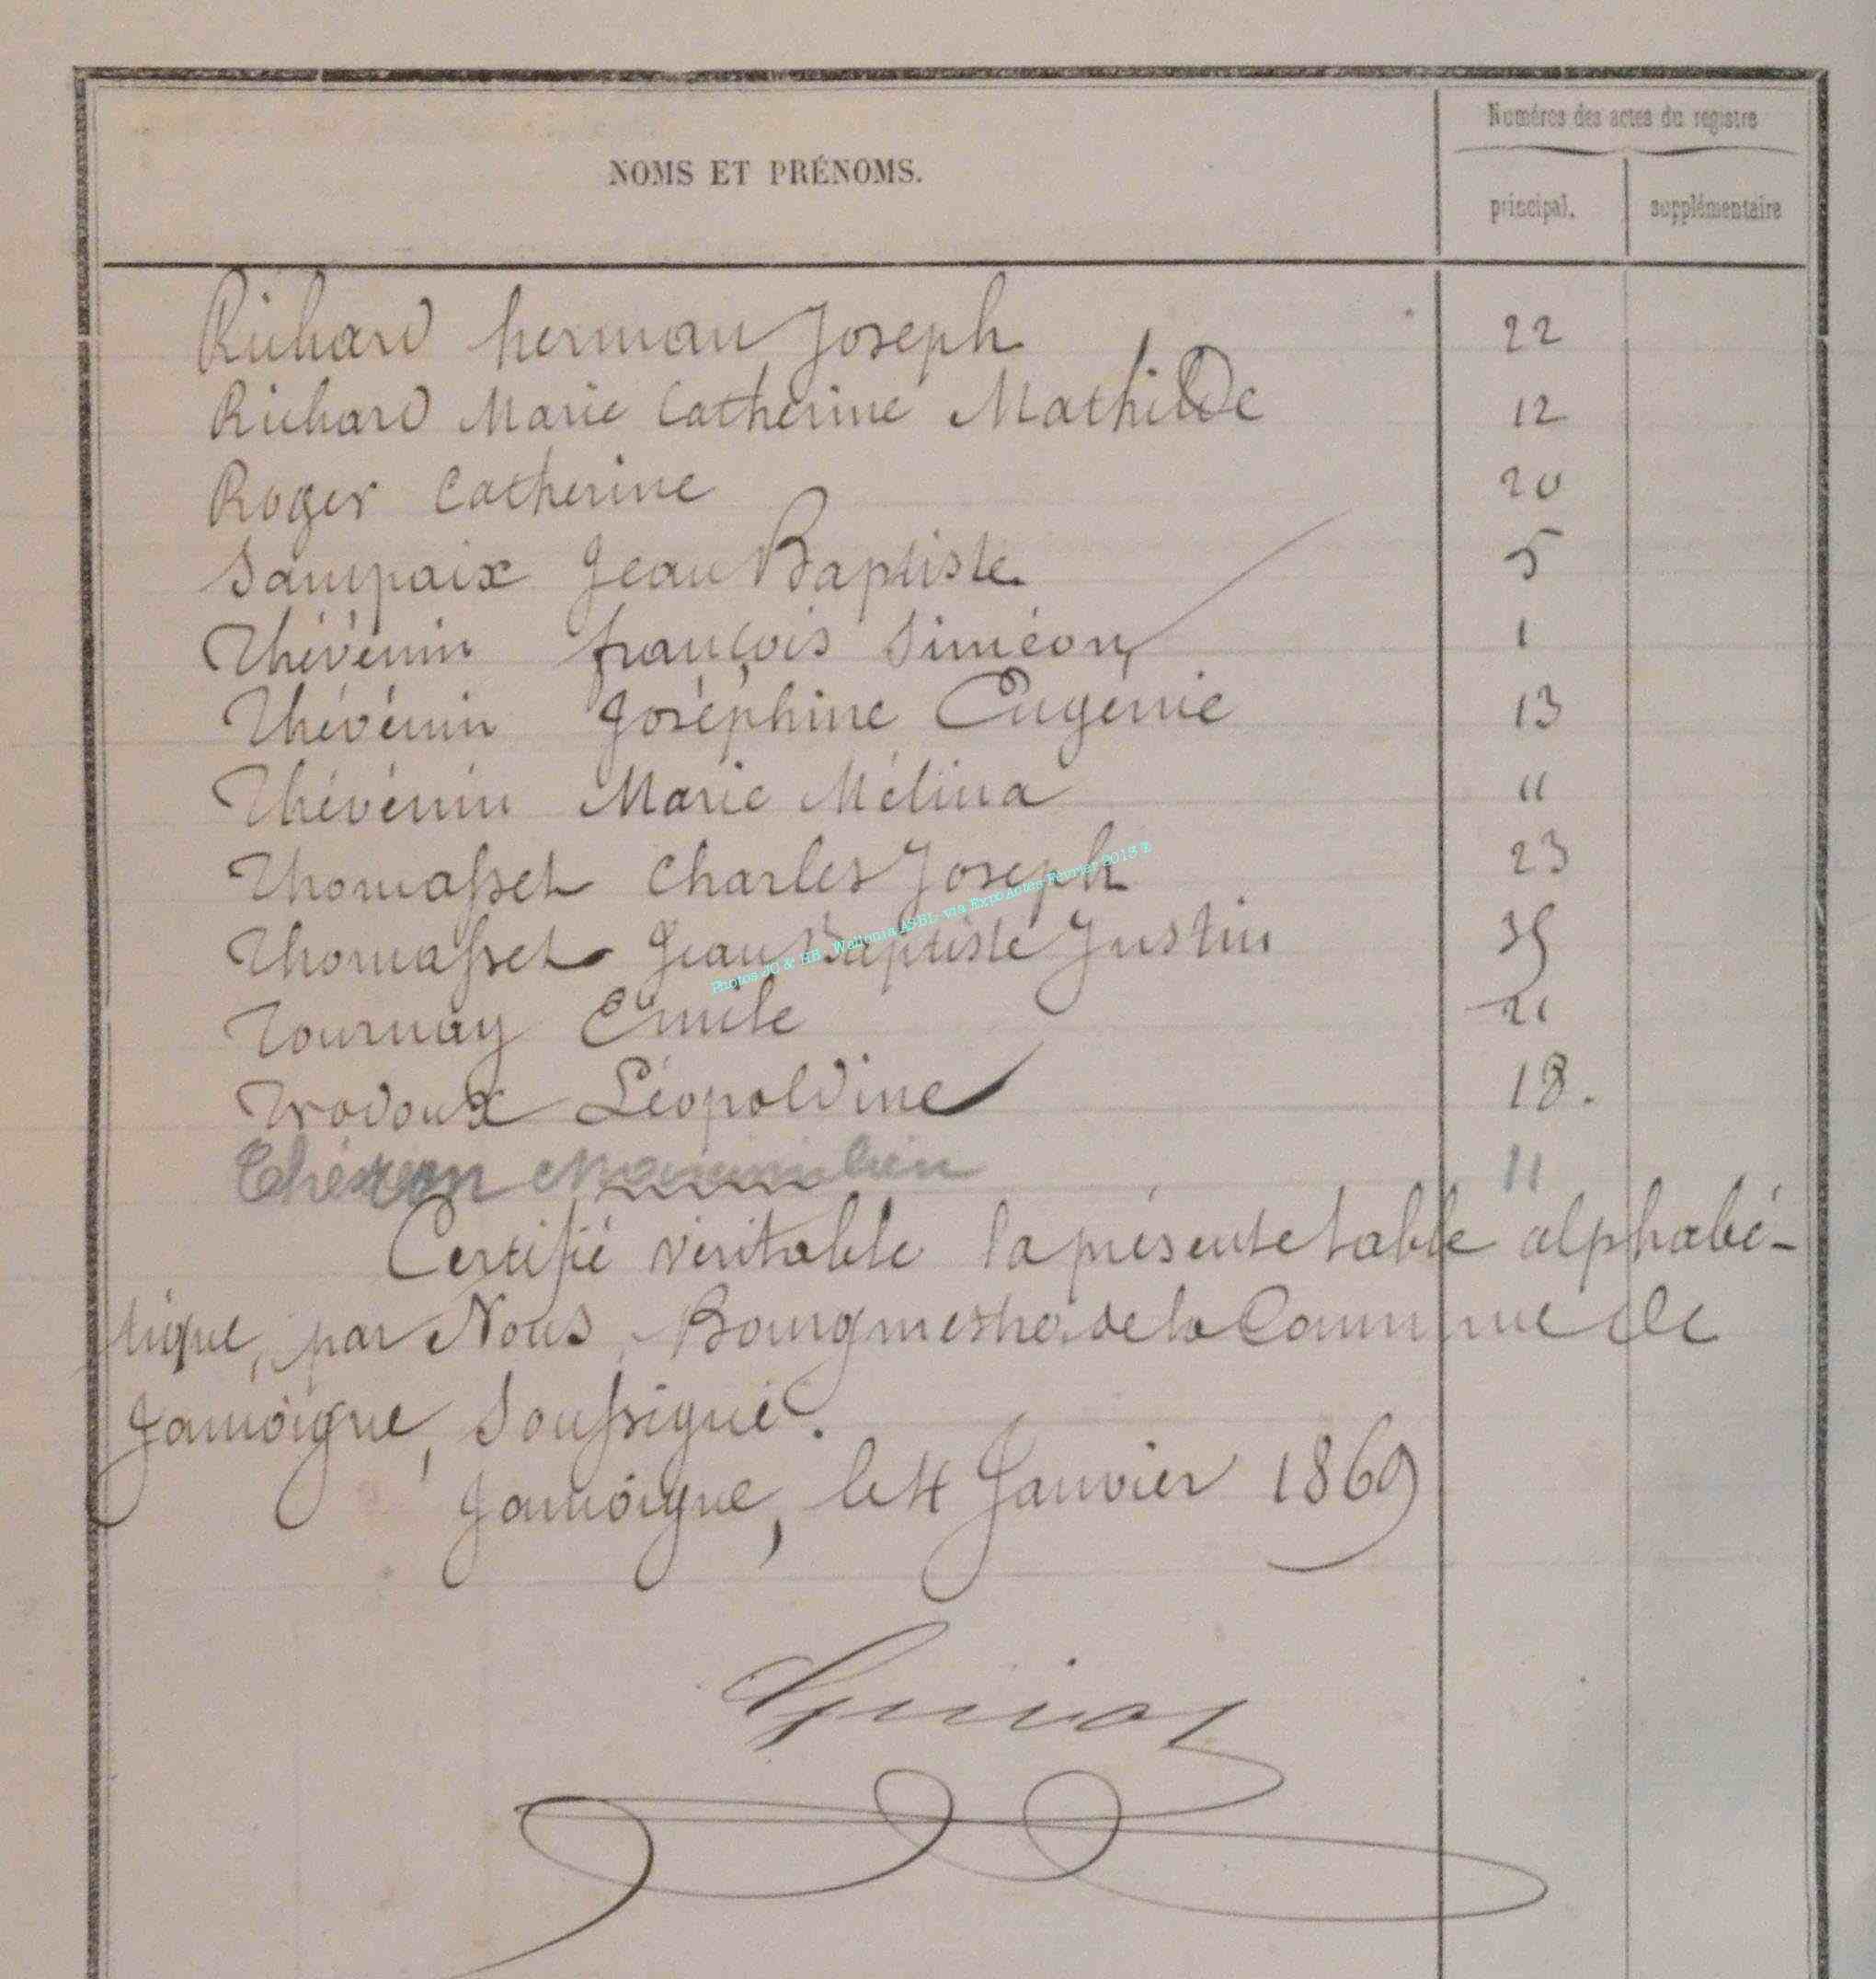 Numéros des actes du registre
NOMS ET PRÉNOMS.
principal. supplémentaire
Richard herman Joseph 22
Richard Marie Catherine Mathilde 12
Roger Catherine 20
Sampaix Jean Baptiste 5
Thévenin françois Siméon 1
Thévénin Joséphine Eugénie 13
Thévénin Marie Mélina 11
Thomasset Charles Joseph 23
Thomasset Jean Baptiste Justin 35
Photos JC & HB - Wallonia ASBL- via ExpoActes Février 2018 E
Tournay Emile 21
Trodoux Léopoldine 18.
11
Certifié véritable la présente table alphabé-
tique, par Nous, Bourgmestre de la Commune de
Jamoigne, Soussigné.
Jamoigne, le 4 Janvier 1869